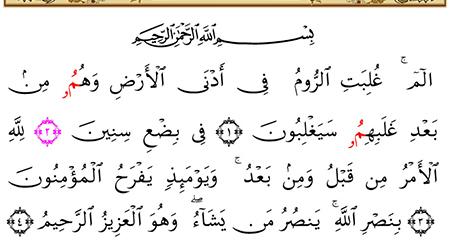 بِسْمِ ٱللَّهِ ٱلرَّحْمَٰنِ ٱلرَّحِيمِ
الٓمٓ ۚ غُلِبَتِ ٱلرُّومُ فِى أَدْنَى ٱلْأَرْضِ وَهُمُۥ مِنۢ
بَعْدِ غَلَبِهِمُۥ سَيَغْلِبُونَ ﴿١﴾ فِى بِضْعِ سِنِينَ ﴿٢﴾ لِلَّهِ
ٱلْأَمْرُ مِن قَبْلُ وَمِنۢ بَعْدُ ۚ وَيَوْمَئِذٍ يَفْرَحُ ٱلْمُؤْمِنُونَ
﴿٣﴾ بِنَصْرِ ٱللَّهِ ۚ يَنصُرُ مَن يَشَآءُ ۖ وَهْوَ ٱلْعَزِيزُ ٱلرَّحِيمُ ﴿٤﴾